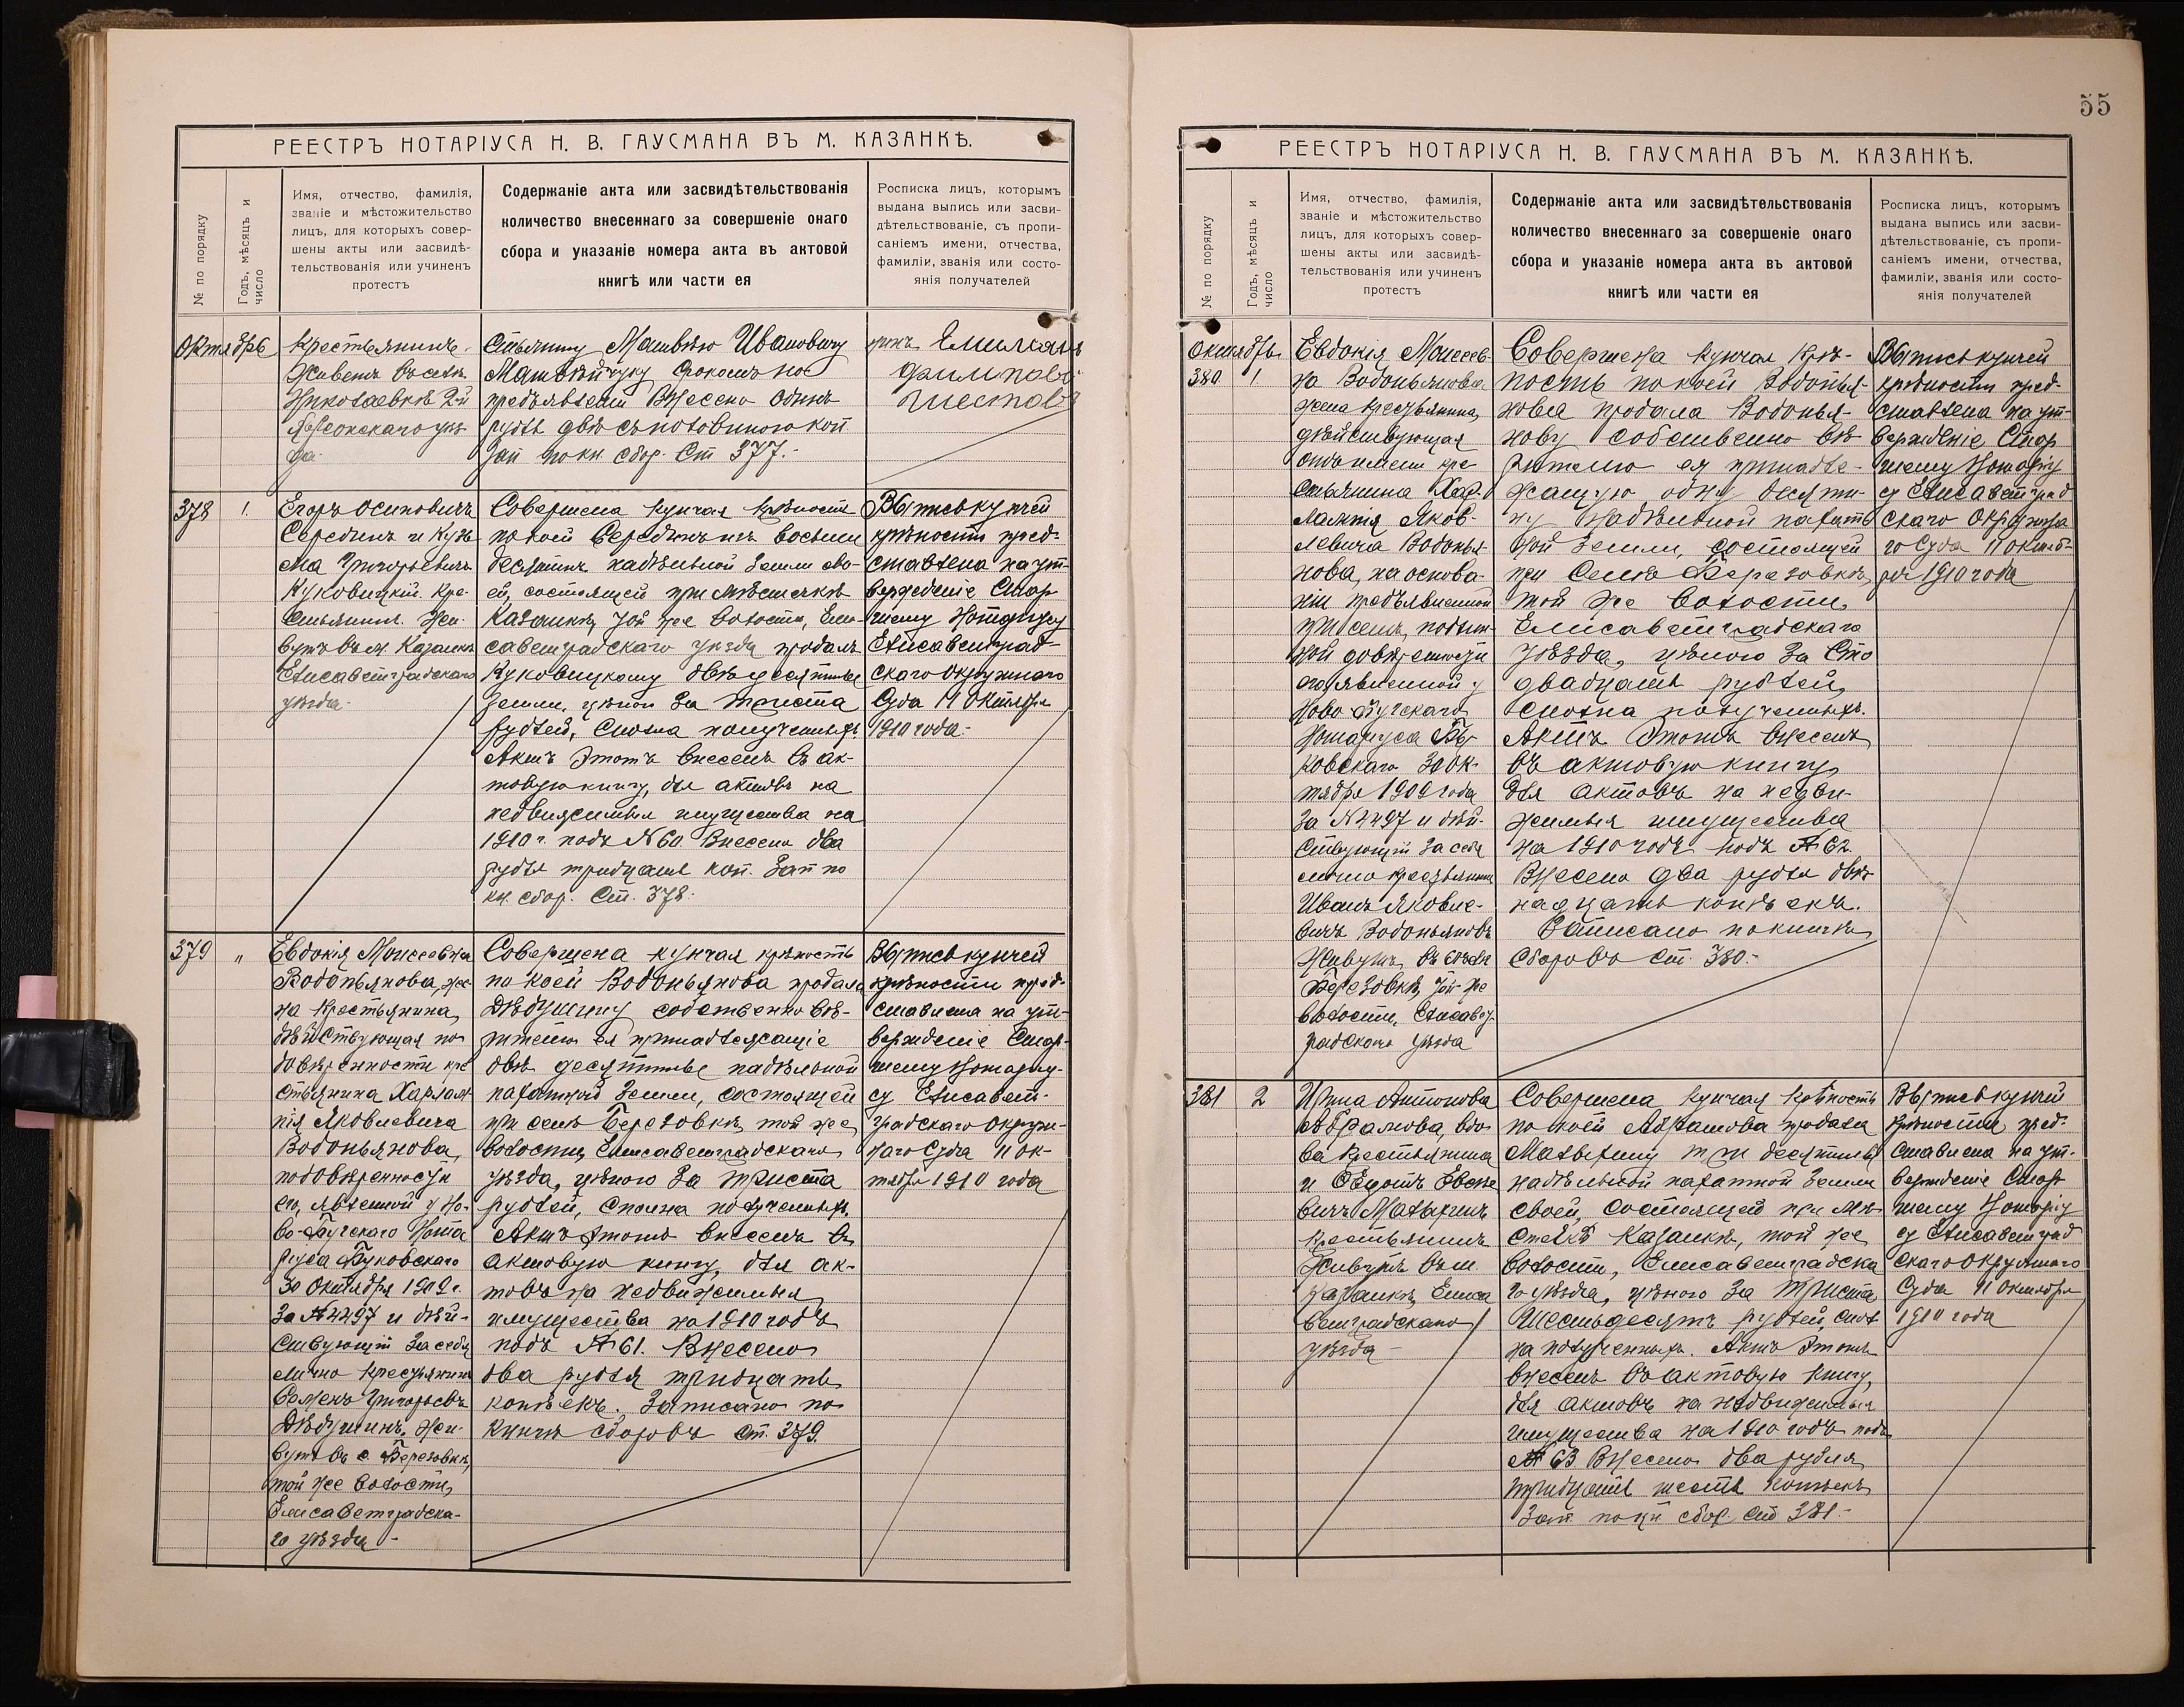 РЕЕСТРЪ НОТАРІУСА Н. В. ГАУСМАНА ВЪ М. КАЗАНКѢ.
№ по порядку
Годъ, мѣсяцъ и
число
Имя, отчество, фамилія,
званіе и мѣстожительство
лицъ, для которыхъ совер-
шены акты или засвидѣ-
тельствованія или учиненъ
протестъ
Содержаніе акта или засвидѣтельствованія
количество внесеннаго за совершеніе онаго
сбора и указаніе номера акта въ актовой
книгѣ или части ея
Росписка лицъ, которымъ
выдана выпись или засви-
дѣтельствованіе, съ пропи-
саніемъ имени, отчества,
фамиліи, званія или состо-
янія получателей
Октябрь
Крестьянинъ.
Живетъ въ селѣ
Николаевкѣ 2й
Херсонскаго уѣз-
да.
Матвѣю Ивановичу
Матвѣйчуку
предъявленіи Внесено одинъ
рубль двѣ съ половиною коп
Зап по кн. сбор. Ст 377.-
378
1.
Егоръ Осиповичъ
Серединъ и Кузь-
ма Григорьевичъ
Куковицкій. Кре-
стьянинъ. Жи-
вутъ въ м. Казанкѣ
Елисаветградскаго
уѣзда.
Совершена купчая крѣпость
по коей Серединъ изъ восьми
десятинъ надѣльной земли сво-
ей, состоящей при мѣстечкѣ
Казанкѣ, той же волости, Ели-
саветградскаго уѣзда продалъ
Куковицкому двѣ десятины
земли, цѣною за триста
рублей, сполна полученныхъ.
Актъ этотъ внесенъ въ ак-
товую книгу, для актовъ на
недвижимыя имущества на
1910 г. подъ № 60. Внесено два
рубля тридцать коп. Зап по
кн. сбор. Ст. 378.
Выпись купчей
крѣпости пред-
ставлена на ут-
вержденіе Стар-
шему Нотаріусу
Елисаветград-
скаго Окружнаго
Суда 11 Октября
1910 года.-
379
"
Евдокія Моисеевна
Водопьянова, же-
на крестьянина,
дѣйствующая по
довѣренности кре
стьянина Харлам-
пія Яковлевича
Водопьянова,
по довѣренности
его, явленной у Но-
во-Бугскаго Нота
ріуса Буковскаго
30 Октября 1909 г.
за № 4497 и дѣй-
ствующій за себя
лично крестьянинъ
Семенъ Григорьевъ
Дѣдушинъ, жи-
вутъ въ с. Березовкѣ,
той же волости,
Елисаветградска-
го уѣзда -
Совершена купчая крѣпость
по коей Водопьянова продала
Дѣдушину собственно вѣ-
рителю ея принадлежащіе
двѣ десятины надѣльной
пахатной земли, состоящей
при селѣ Березовкѣ, той же
волости, Елисаветградскаго
уѣзда, цѣною за триста
рублей, сполна полученныхъ.
Актъ этотъ внесенъ въ
актовую книгу, для ак-
товъ на недвижимыя
имущества на 1910 годъ
подъ № 61. Внесено
два рубля тридцать
копѣекъ. Записано по
книгѣ сборовъ ст. 379.
Выпись купчей
крѣпости пред-
ставлена на ут-
вержденіе Стар-
шему Нотаріу-
су Елисавет-
градскаго Окруж-
наго Суда 11 Ок-
тября 1910 года
55
РЕЕСТРЪ НОТАРІУСА Н. В. ГАУСМАНА ВЪ М. КАЗАНКѢ.
№ по порядку
Годъ, мѣсяцъ и
число
Имя, отчество, фамилія,
званіе и мѣстожительство
лицъ, для которыхъ совер-
шены акты или засвидѣ-
тельствованія или учиненъ
протестъ
Содержаніе акта или засвидѣтельствованія
количество внесеннаго за совершеніе онаго
сбора и указаніе номера акта въ актовой
книгѣ или части ея
Росписка лицъ, которымъ
выдана выпись или засви-
дѣтельствованіе, съ пропи-
саніемъ имени, отчества,
фамиліи, званія или состо-
янія получателей
Октябрь
380
1.
Евдокія Моисеев-
на Водопьянова
жена крестьянина,
дѣйствующая
отъ имени кре
стьянина Хар-
лампія Яков-
левича Водопья-
нова, на основа-
ніи предъявленной
при семъ, подлин-
ной довѣренности
его явленной у
Ново-Бугскаго
Нотаріуса Бу-
ковскаго 30 Ок-
тября 1909 года
за № 4497 и дѣй-
ствующій за себя
лично крестьянинъ
Иванъ Яковле-
вичъ Водопьяновъ
Живутъ въ селѣ
Березовкѣ, той же
волости, Елисавет-
градскаго уѣзда
Совершена купчая крѣ-
пость по коей Водопья-
нова продала Водопья-
нову собственно вѣ-
рителю ея принадле-
жащую одну десяти-
ну надѣльной пахат-
ной земли, состоящей
при Селѣ Березовкѣ,
той же волости,
Елисаветградскаго
уѣзда, цѣною за сто
двадцать рублей,
сполна полученныхъ.
Актъ этотъ внесенъ
въ актовую книгу
для актовъ на недви-
жимыя имущества
на 1910 годъ подъ № 62.
Внесено два рубля двѣ-
надцать копѣекъ.
Записано по книгѣ
Сборовъ ст. 380.-
Выпись купчей
крѣпости пред-
ставлена на ут-
вержденіе Стар
шему Нотаріу
су Елисаветград
скаго Окружна
го Суда 11 Октяб-
ря 1910 года
381
2
Ирина Антонова
Абрамова, вдо-
ва крестьянина
Крестьянинъ
Живутъ въ м.
Казанкѣ, Елиса
ветградскаго
уѣзда -
Совершена купчая крѣпость
по коей Абрамова продала
три десятины
надѣльной пахатной земли
своей, состоящей при мѣ-
стечкѣ Казанкѣ, той же
волости, Елисаветградска
го уѣзда, цѣною за триста
шестьдесятъ рублей, спол
на полученныхъ. Актъ этотъ
внесенъ въ актовую книгу,
для актовъ на недвижимыя
имущества на 1910 годъ подъ
№ 63 Внесено два рубля
тридцать шесть копѣекъ
Зап. по кн сбор. ст 381.-
Выпись купчей
крѣпости пред-
ставлена на ут-
вержденіе Стар
шему Нотаріу
су Елисаветград
скаго Окружнаго
Суда 11 Октября
1910 года